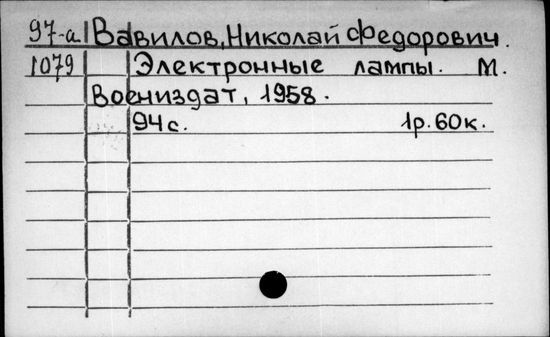 97-а Вавилов, Николай Федорович.
1079 Электронные лампы. М.
Воениздат, 1958.
94с. 1р. 60к.